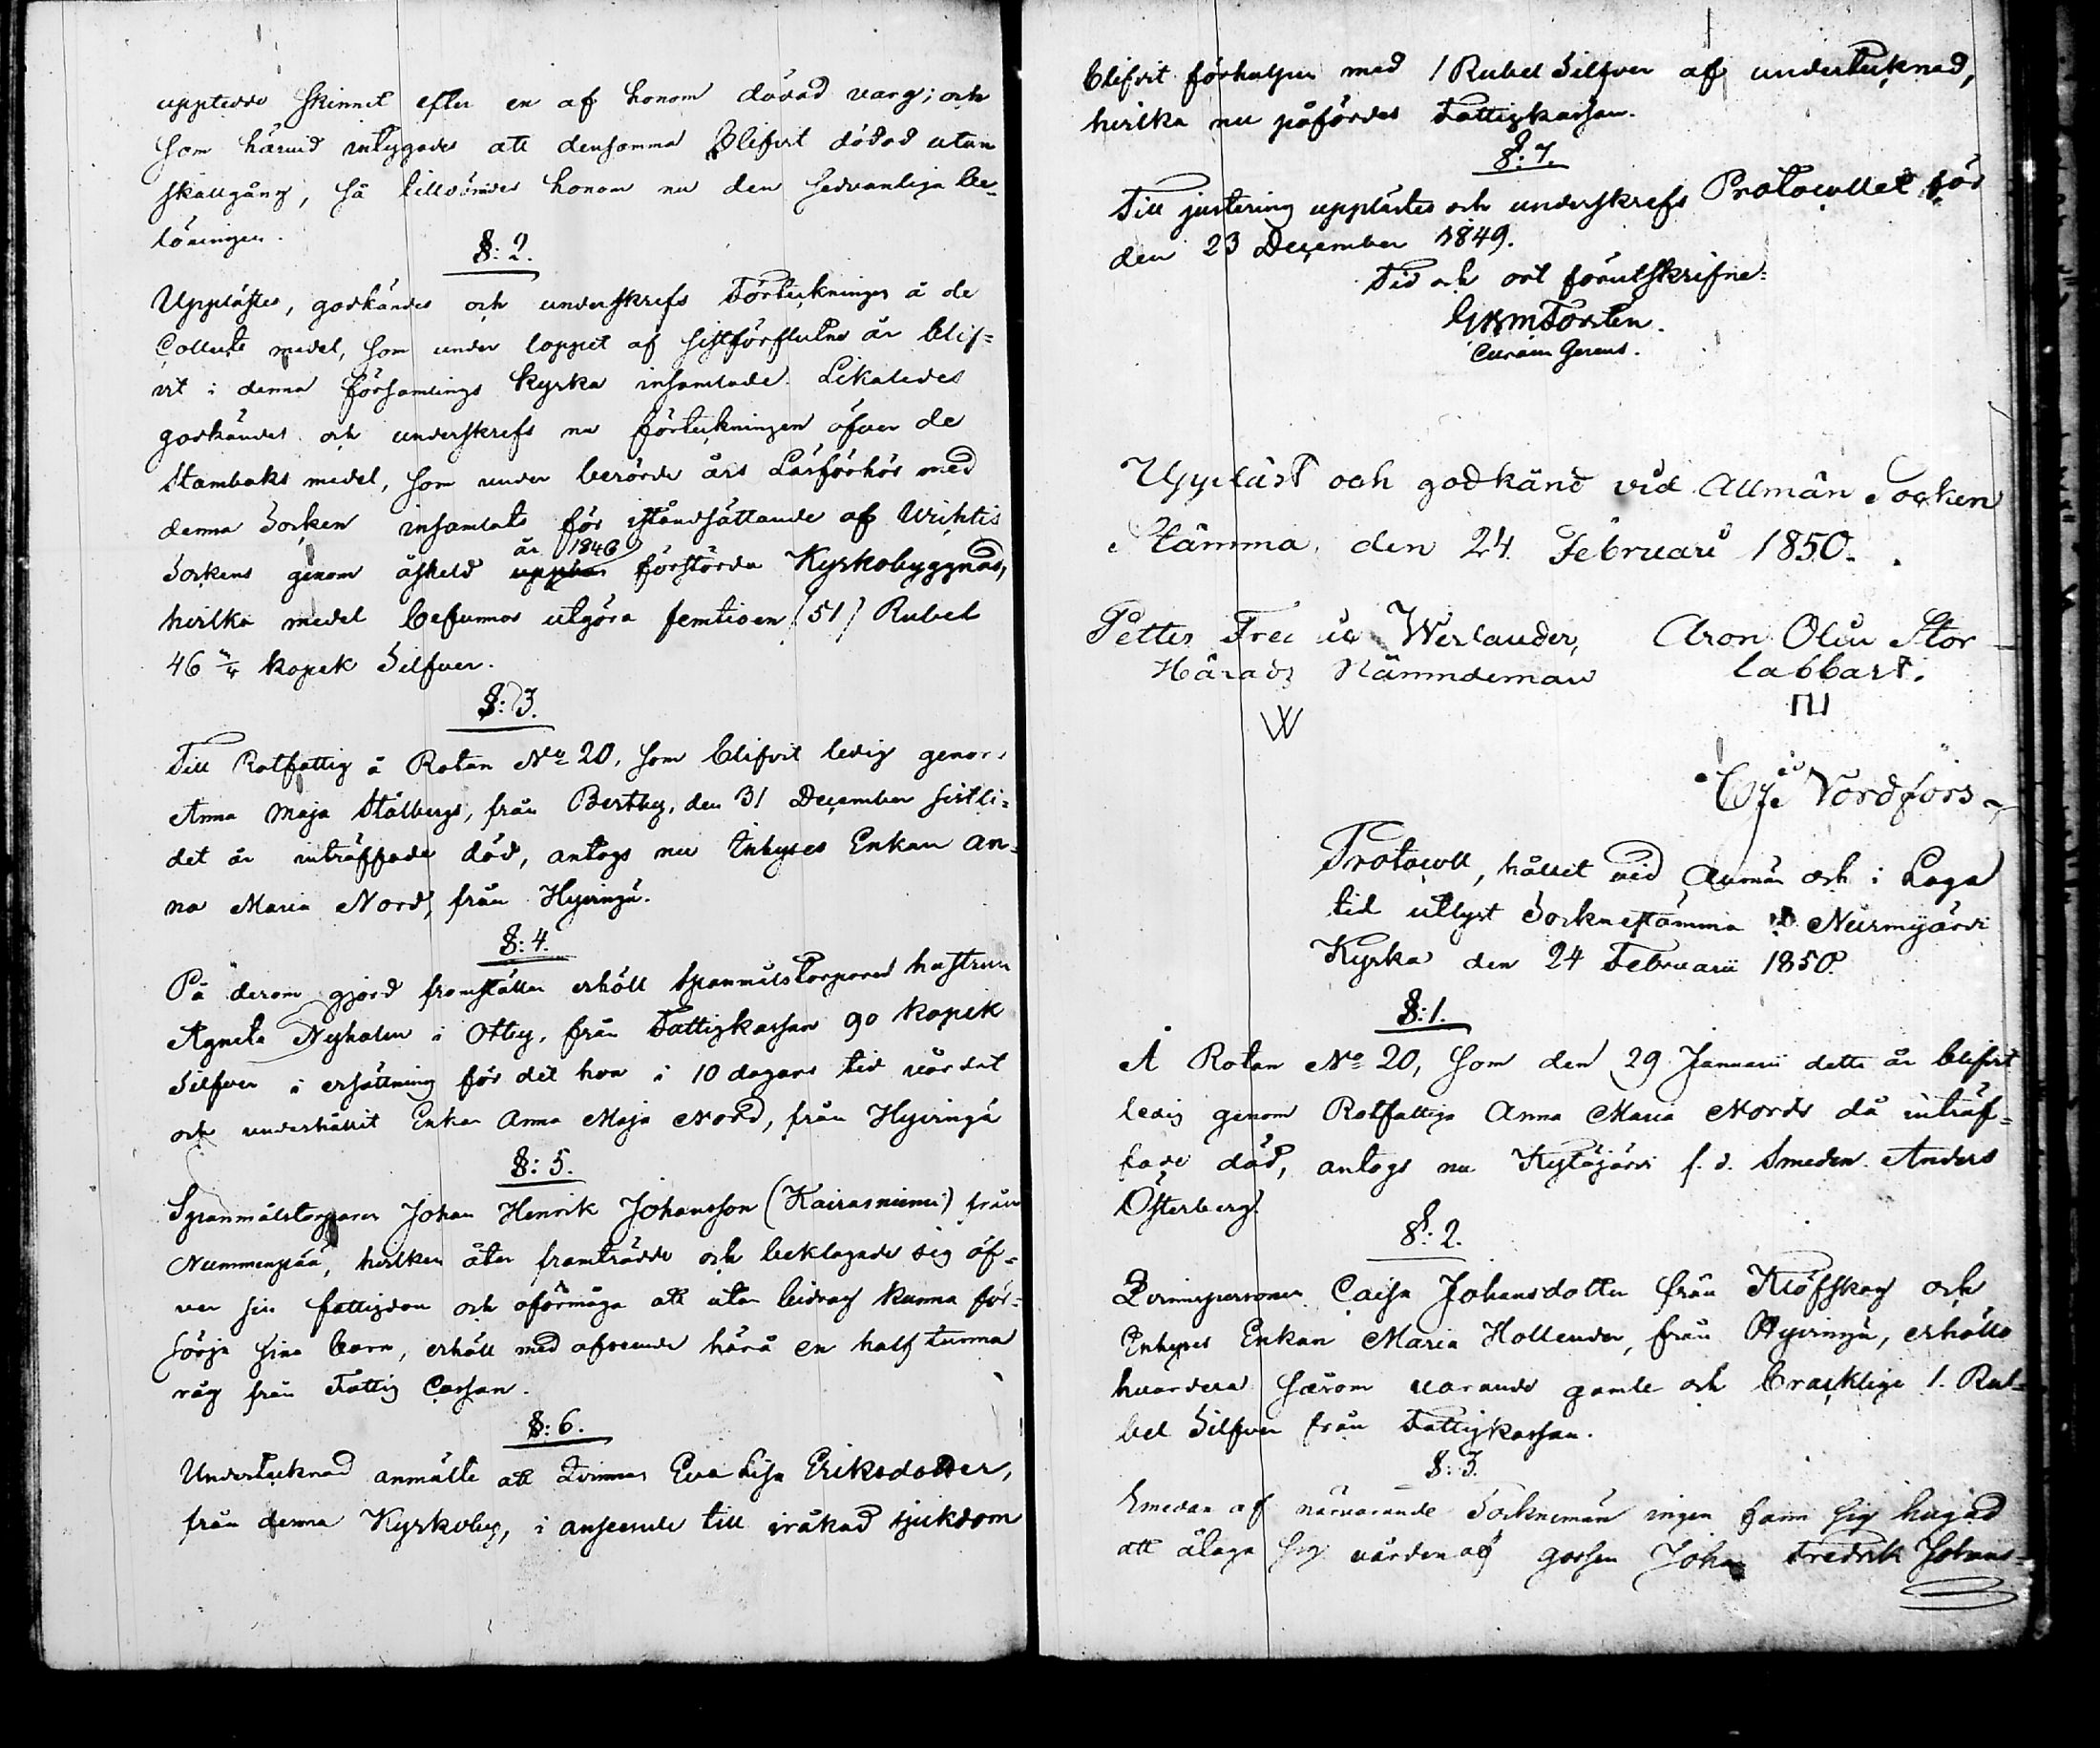 upptedde skinnet efter en af honom dödad varg; och
som härvid intygades att densamma blifvit dödad utan
skallgång, så tilldömdes honom nu den sedvanliga be-
löningen.
§: 2.
Upplästes, godkändes och underskrefs Förtekningen å de
Collecte medel, som under loppet af sistförflutne år blif=
vit i denna församlings kyrka insamlade. Likaledes
godkändes och underskrefs nu förtekningen öfver de
Stamboks medel, som under berörde års Läsförhör med
denna Socken insamlats för iståndsättande af Wichtis
Sockens genom åskeld år 1846 förstörda Kyrkobyggnad,
hvilka medel befunnos utgöra femtioen (51) Rubel
46 kopek Silfver.
§: 3.
Till Rotfattig å Rotan No 20, som blifvit ledig genom
Anna Maja Stålbergs, från Bertby, den 31 December sistli=
det år inträffade död, antogs nu Inhyses Enkan An=
na Maria Nord, från Hyvingä.
§: 4.
På derom gjord framställan erhöll Spannmålstorparen hustrun
Agneta Nyholm i Ottby, från Fattigkassan 90 kopek
Silfver i ersättning för det hon i 10 dagars tid vårdat
och underhållit Enkan Anna Maja Nord, från Hyvingä
§: 5.
Spannmålstorparen Johan Henrik Johansson (Kairasniemi) från
Nummenpää, hvilken åter framträdde och beklagade sig öf=
ver sin fattigdom och oförmåga att utan bidrag kunna för=
sörja sina barn, erhöll med afseende härå en half tunna
råg från Fattig Cassan.
§: 6.
Undertecknad anmälte att Qvinnan Eva Lisa Eriksdotter,
från denna Kyrkoby, i anseende till iråkad sjukdom
blifvit förhulpen med 1 Rubel Silfver af undertecknad,
hvilka nu påfördes Fattigkassan.
§: 7.
Till justering upplästes och underskrefs Protocollet för
den 23 December 1849.
Tid och ort förutskrifne:
Forstén.
Curam Gerens.
Uppläst och godkänd vid Allmän Socken
Stämma, den 24 Februari 1850.
Petter Werlander, Aron Olin Stor
Härads Nämndeman labbart.
W
Nordfors
Protocoll, hållet vid Allmän och i Laga
tid utlyst Socknestämma i Nurmijärvi
Kyrka den 24 Februarii 1850.
§: 1.
Å Rotan No 20, som den 29 Januarii detta år blifvit
ledig genom Rotfattiga Anna Maria Nords då inträf=
fade död, antogs nu Kytäjärvi f. d. Smeden Anders
Österberg.
§: 2.
Qvinnspersonen Caisa Johansdotter från Klöfskog och
Enhyses Enkan Maria Hollender, från Hyvingä, erhöllo
hvardera såsom varande gamle och bräcklige 1. Ru=
bel Silfver från Fattigkassan.
§: 3.
Emedan af närvarande Socknemän ingen fann sig hugad
att ålaga sig vården af gossen Johan Fredrik Johans=